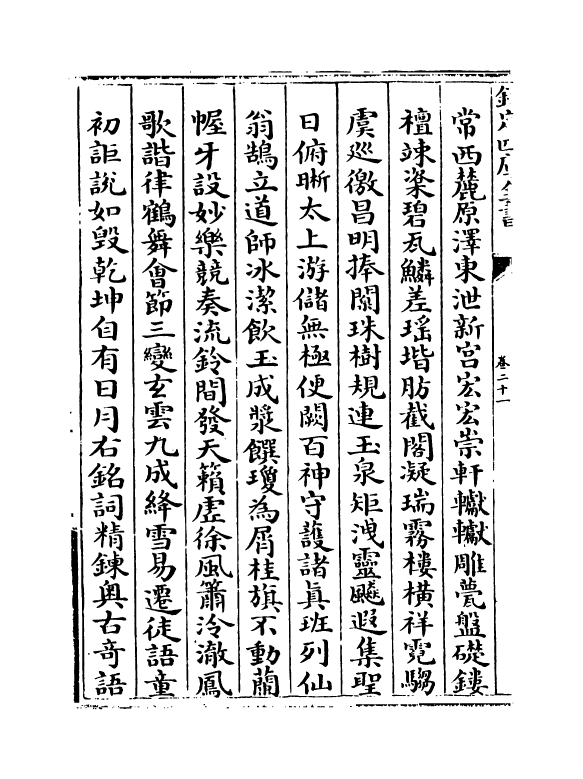 欽定四庫全書
卷二十一
常西麓原澤東泄新宮宏宏崇軒轞轞雕甍盤礎鏤
檀竦楶碧瓦鱗差瑶堦肪截閣凝瑞霧樓横祥霓騶
虞巡徼昌明捧闑珠樹規連玉泉矩洩靈飈遐集聖
日俯晰太上游儲無極便闕百神守護諸眞班列仙
翁鵠立道師冰潔飲玉成漿饌瓊為屑桂旗不動蘭
幄牙設妙樂競奏流鈴間發天籟虛徐風簫泠澈鳳
歌諧律鶴舞會節三變玄雲九成絳雪易遷徒語童
初詎說如毁乾坤自有日月右銘詞精鍊奥古竒語